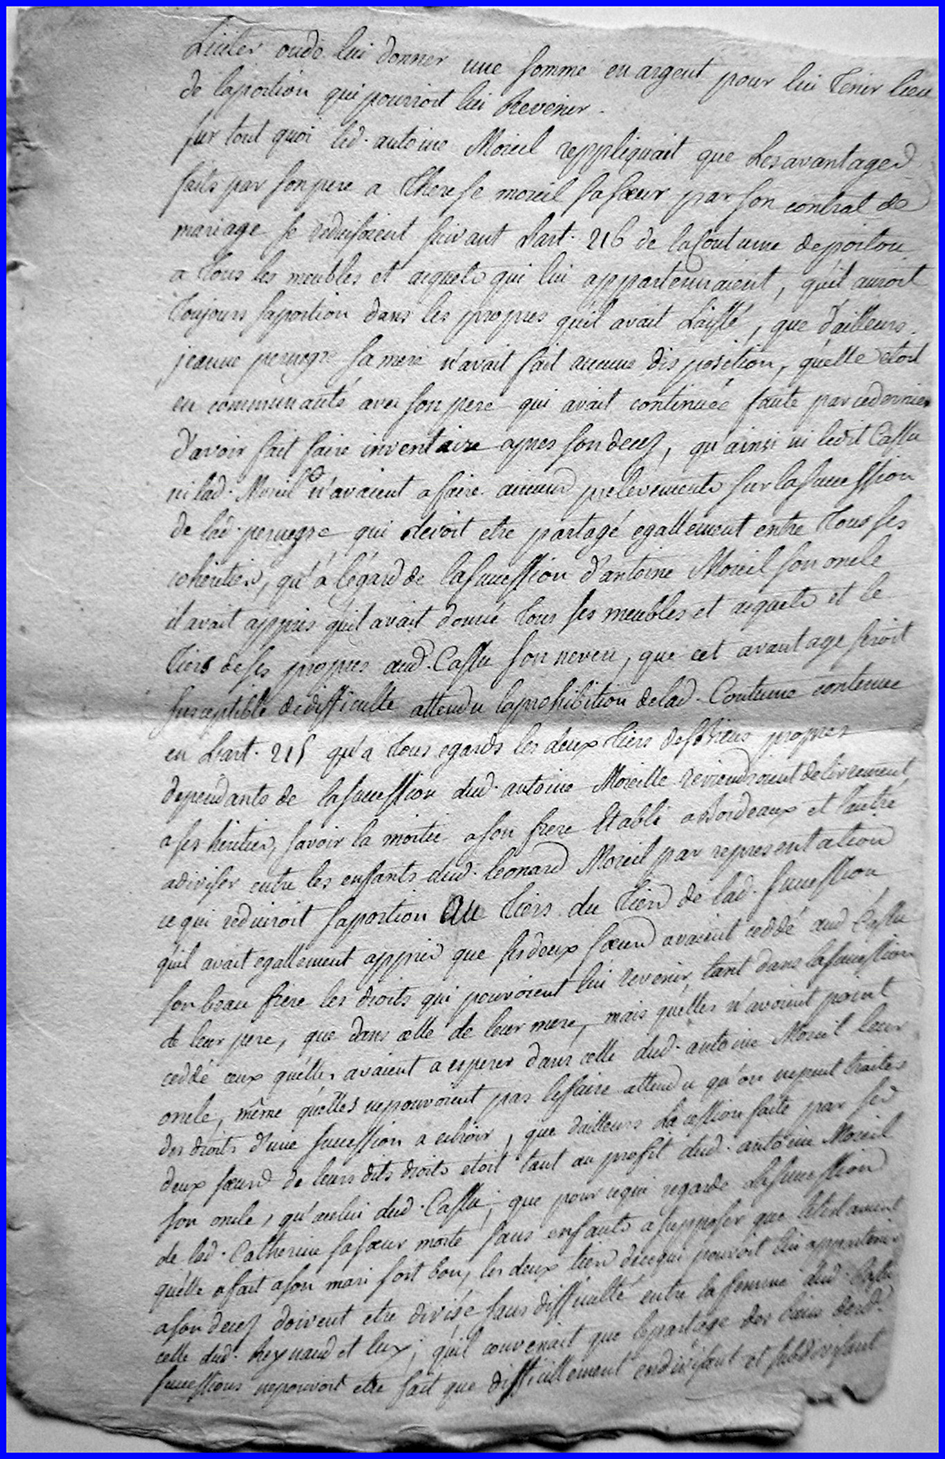 oude lui donner une somme en argent pour lui tenir lieu
de laportion qui pourroit lui Revenir.
sur tout quoi led. antoine Moreil reppliquait que Les avantages
faits par son pere a therese moreil sa sœur par son contrat de
mariage se reduisoient suivant L'art. 216 de la Coutume de poitou
a tous les meubles et acquets qui lui appartennaient, qu'il auroit
toujours saportion dans les propres qu'il avait Laissé, que d'ailleurs
jeanne sa mere n'avait fait aucune disposition, qu'elle etoit
en communauté avec son pere qui avait continuée faute par ce dernier
d'avoir fait faire inventaire apres son decez, qu'ainsi ni ledit Cassu
ni lad. Moreil n'avaient a faire aucuns prelevements sur la succession
de lad. qui devoit etre partagé egallement entre tous ses
coheritiers, qu'a l'égard de la succession d'antoine Moreil son oncle
il avait appris qu'il avait donné tous ses meubles et acquets et le
tiers de ses propres aud. Cassu son neveu, que cet avantage seroit
susceptible de difficulté attendu la prohibition de lad. Coutume contenue
en L'art. 215 qu'a tous egards les deux tiers des biens propres
dependants de la succession dud. antoine Moreille reviendroient delivrement
a ses heritiers, savoir la moitié a son frere Etabli a Bordeaux et l'autre
a diviser entre les enfants dud. leonard Moreil par representation
ce qui reduiroit saportion Au tiers du tiers de lad. succession
qu'il avait egallement appris que ses deux sœurs avaient ceddé aud. Cassu
son beau frere les droits qui pouvoient lui revenir, tant dans la succession
de leur pere, que dans celle de leur mere, mais qu'elles n'avoient point
ceddé ceux qu'elles avaient a esperer dans celle dud. antoine Moreil leur
oncle, même qu'elles ne pouvoient pas le faire attendu qu'on ne peut traiter
des droits d'une succession a echoir, que d'ailleurs La cession faite par ses
deux sœurs de leurs dits droits etoit tant au profit dud. antoine Moreil
son oncle, qu'a celui dud. Cassu, que pour ce qui regarde La succession
de lad. Catherine sa sœur morte sans enfants a supposer que le testament
qu'elle a fait a son mari soit bon, les deux tiers de ce qui pouvoit lui appartenir
a son decez doivent etre divisé sans difficulté entre la femme dud. Cassu
celle dud. Reynaud et lui; qu'il convenait que le partage des biens desd.
successions ne pouvoit etre fait que difficillement en divisant et subdivisant